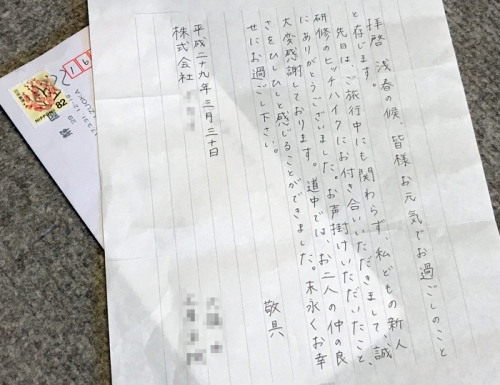 拝啓 浅春の候、皆様お元気でお過ごしのこと
と存じます。
先日は、ご旅行中にも関わらず、私どもの新人
研修のヒッチハイクにお付き合いいただきまして、誠
にありがとうございました。お声掛けいただいたこと、
大変感謝しております。道中では、お二人の仲の良
さをひしひしと感じることができました。末永くお幸
せにお過ごし下さい。
敬具
平成二十九年三月三十日
株式会社
82